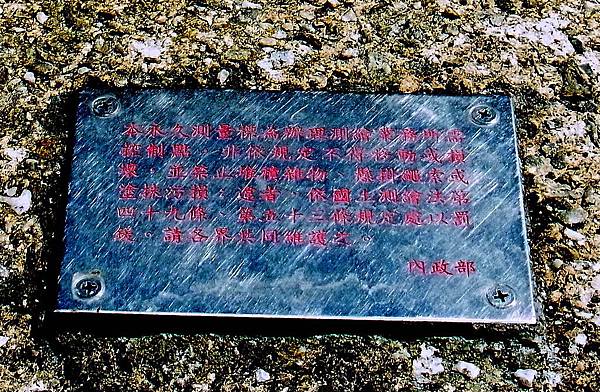 本永久測量標為辦理測繪業務所需
控制點，非依規定不得移動或損
壞，並禁止堆積雜物、懸掛繩索或
塗抹污損，違者，依國土測繪法第
四十九條、第五十二條規定處以罰
鍰。請各界共同維護之。
內政部